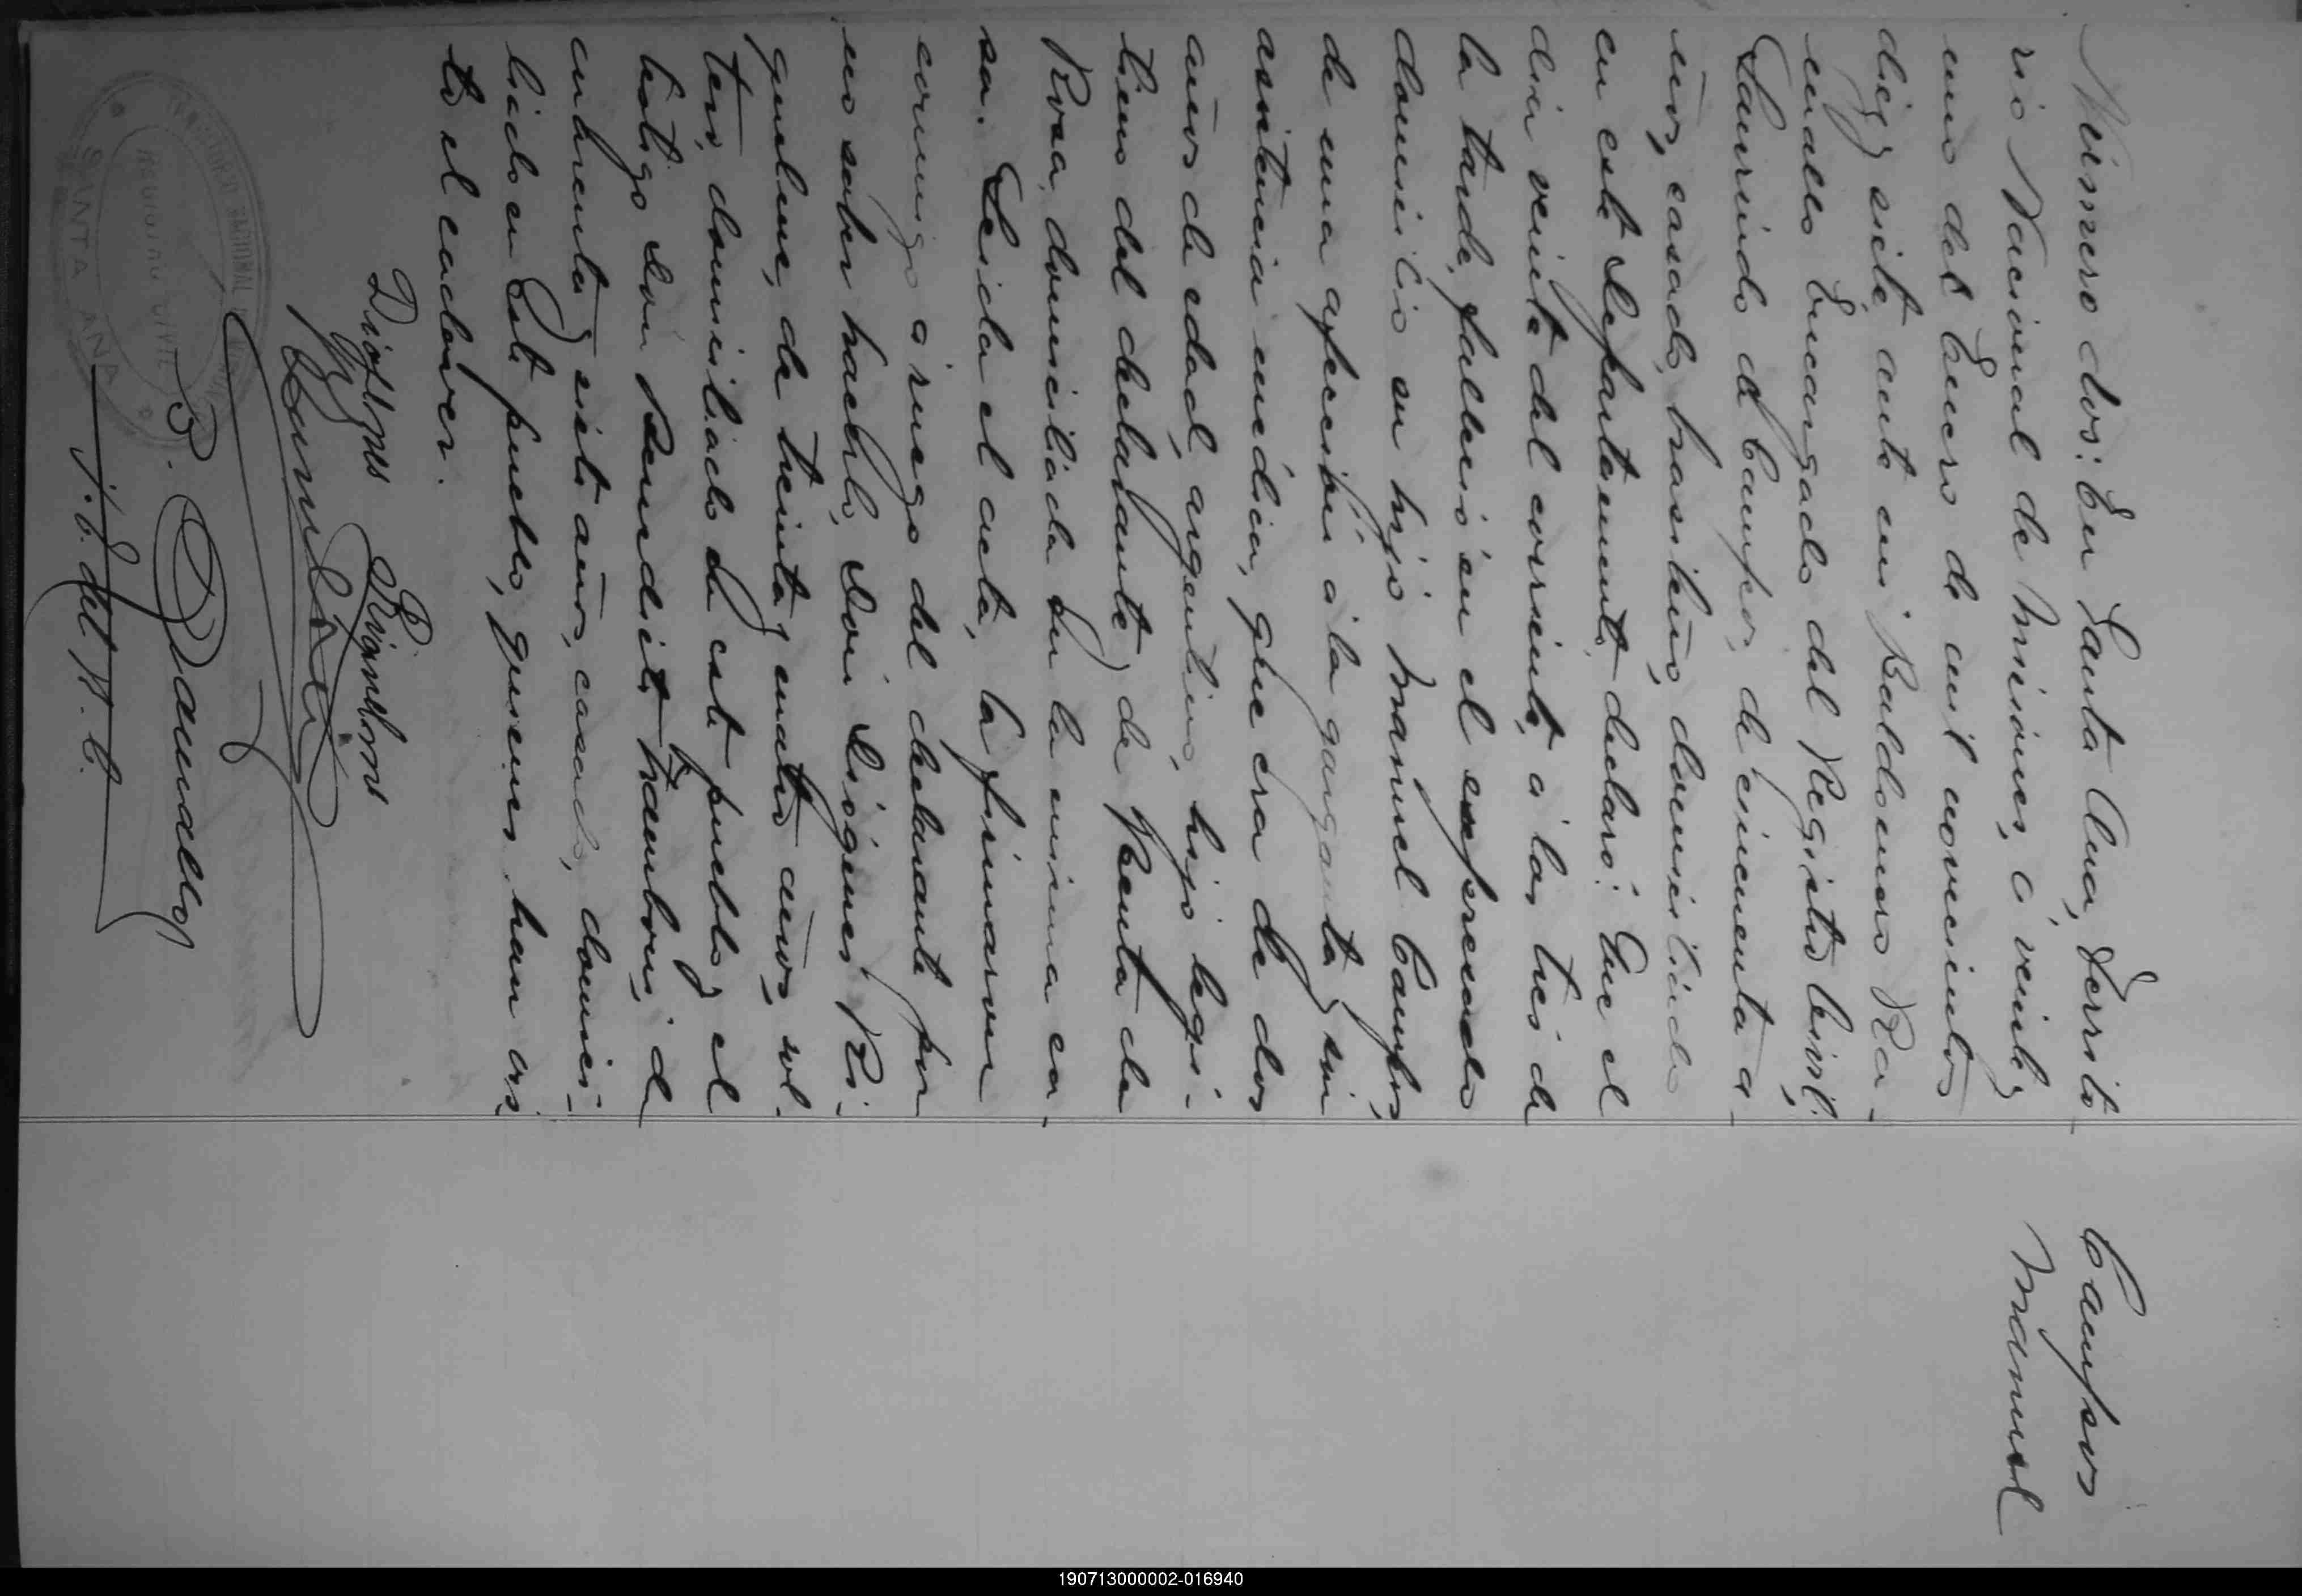 Campos
Manuel
Número dos: En Santa Ana, Territo
rio Nacional de Misiones, á veinte y
uno del Enero de mil novecientos
diez y siete ante mi Baldomero Ra-
mallo Encargado del Registro Civil;
Laurindo de Campos, de cincuenta a
ños, casado, brasileño, domiciliado
en este Departamento, declaró: Que el
dia veinte del corriente, á las tres de
la tarde, falleció en el expresado
domicilio su hijo Manuel Campos,
de una afección á la garganta y sin
asistencia médica, que era de dos
años de edad, argentino, hijo legi-
timo del declarante, y de Benta da
Rosa, domiciliada en la misma ca
sa. Leida el acta, la firmaron
conmigo á ruego del declarante por
no saber hacerlo, Don Diógenes Ri-
guelme, de treinta y cuatro años, sol-
tero, domiciliado en este pueblo, y el
testigo Don Benedicto Zamboni, de
cincuenta y siete años, casado, domici-
liado en este pueblo, quienes han vis
to el cadáver.
Diógenes Riquelme
B. Ramallo
J. E. del R. C.
REGISTRO CIVIL
SANTA ANA
190713000002-016940